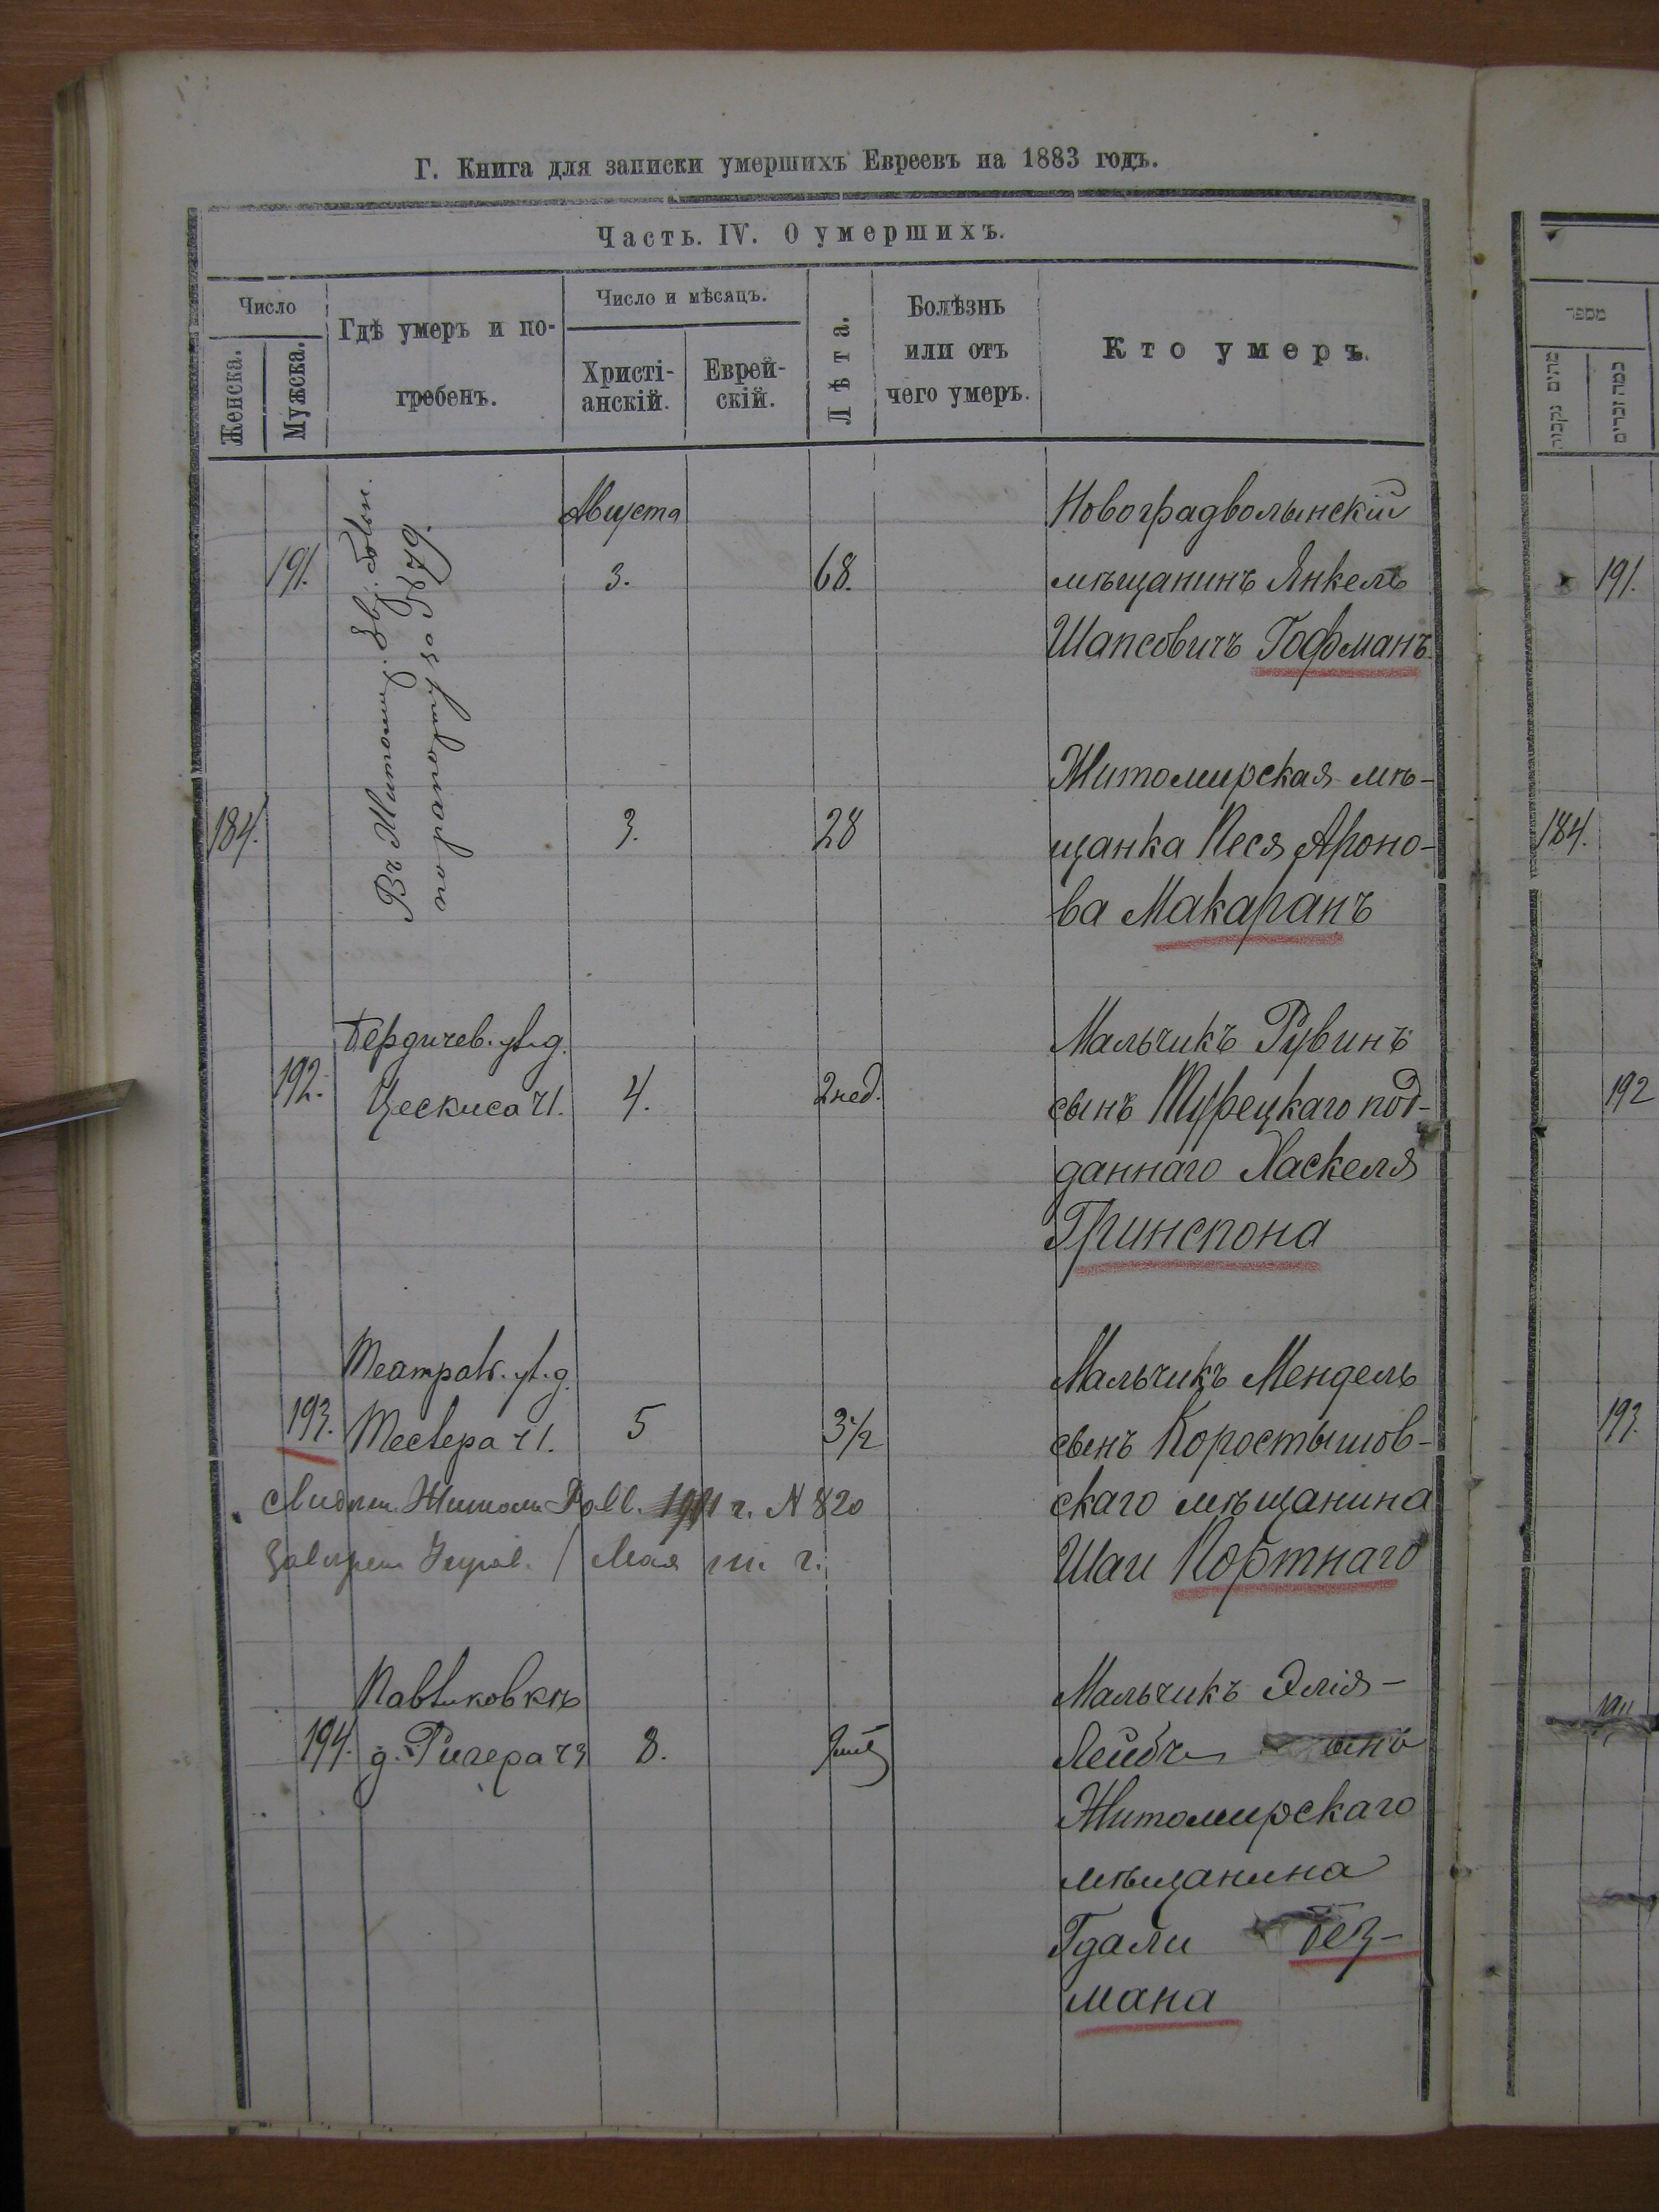 Г. Книга для записки умершихъ Евреевъ на 1883 годъ.
Часть. IV. О умершихъ.
Число
Женска.
Мужска.
Гдѣ умеръ и по-
гребенъ.
Число и мѣсяцъ.
Христі-
анскій.
Еврей-
скій.
Лѣта.
Болѣзнь
или отъ
чего умеръ.
Кто умеръ.
191.
Въ Житомир. Евр. больн.
по рапорту за № 79.
Августа
3.
68.
Новоградволынскій
мѣщанинъ Янкель
Шапсовичъ Гофманъ
184.
3.
28
Житомирская мѣ-
щанка Песя Ароно-
ва Макаранъ
192.
Бердичев. ул. д.
Цескиса ч1.
4.
2 нед.
Мальчикъ Рувинъ
сынъ Турецкаго под-
даннаго Хаскеля
Гринспона
193.
Театральн. ул. д.
Тесвера ч1.
5
3 1/2
Мальчикъ Мендель
сынъ Коростышов-
скаго мѣщанина
Шаи Портнаго
Житом. г. № 820
Мая г.
194.
Павликовкѣ
д. Ригера ч3
8.
Мальчикъ Элія-
Лейбъ сынъ
Житомирскаго
мѣщанина
Гдали Без-
мана
מספר
191.
184.
192
193.